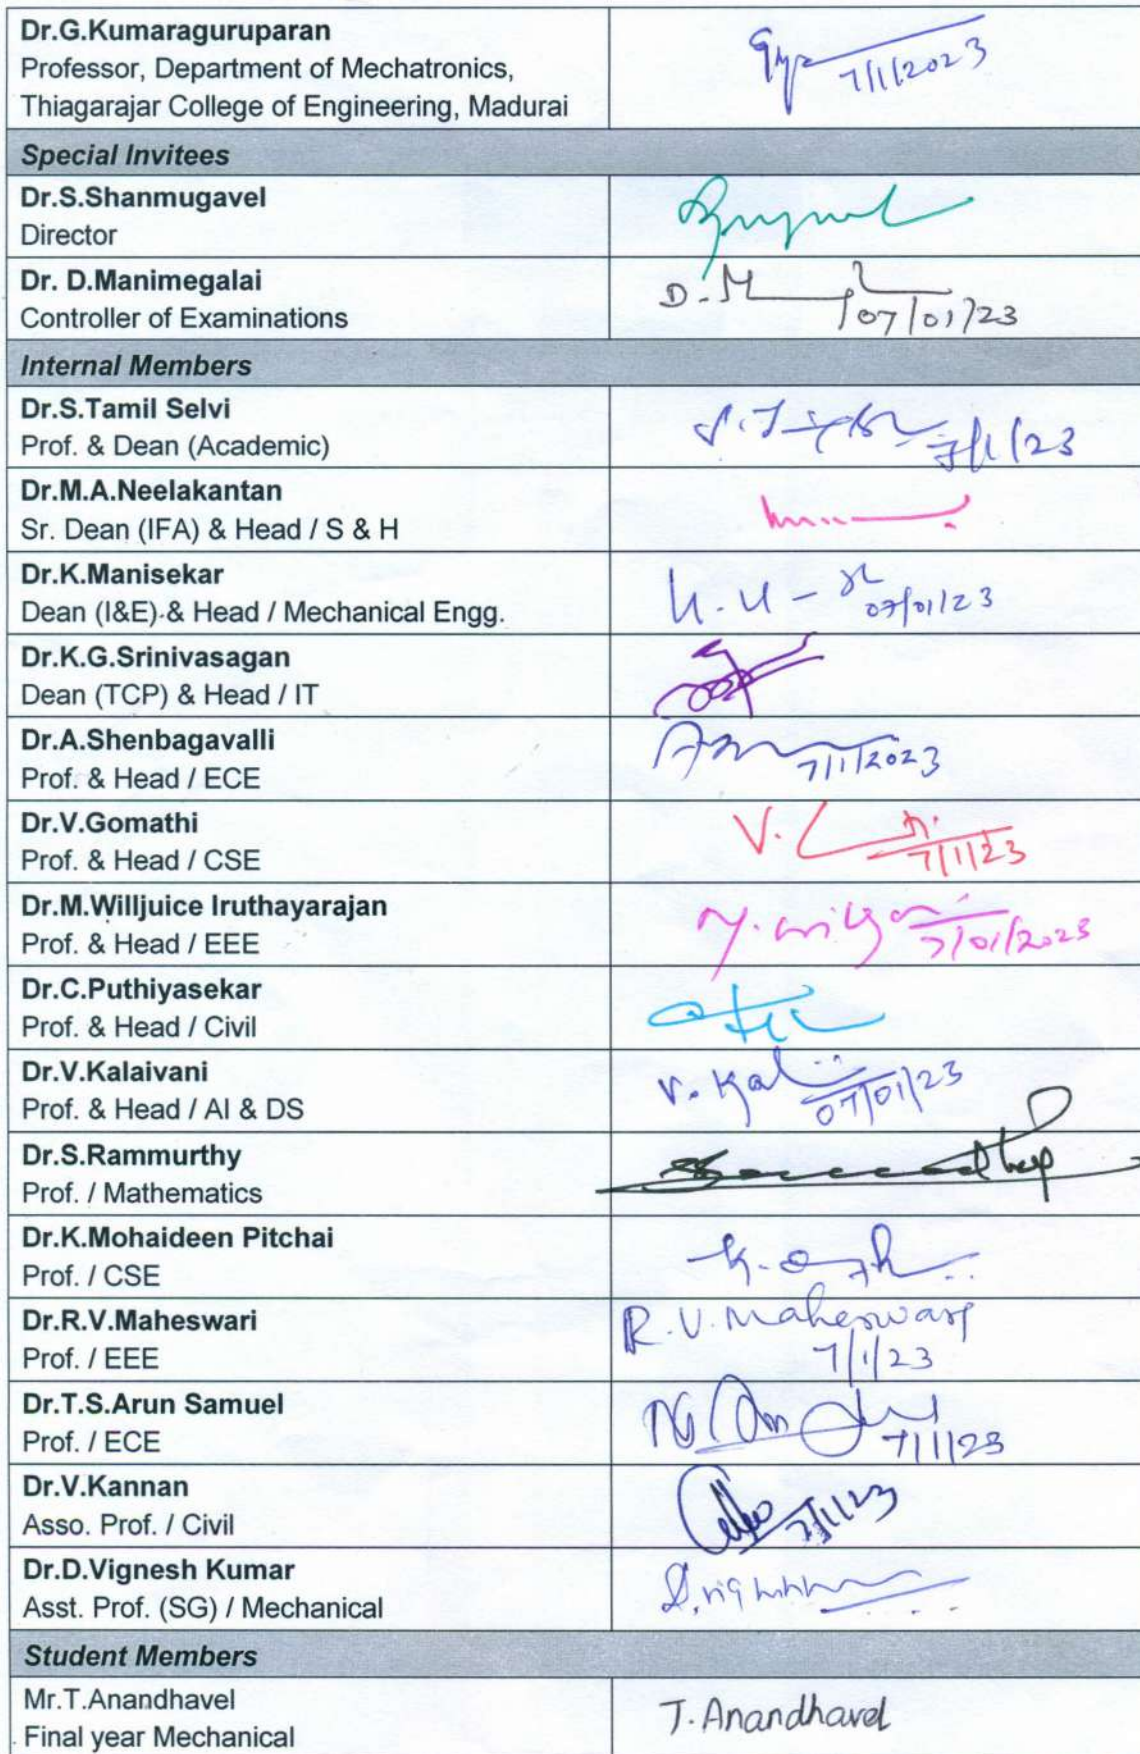 Dr.G.Kumaraguruparan
Professor, Department of Mechatronics,
Thiagarajar College of Engineering, Madurai
7/1/2023
Special Invitees
Dr.S.Shanmugavel
Director
Dr. D.Manimegalai
Controller of Examinations
D.M
07/01/23
Internal Members
Dr.S.Tamil Selvi
Prof. & Dean (Academic)
7/1/23
Dr.M.A.Neelakantan
Sr. Dean (IFA) & Head / S & H
Dr.K.Manisekar
Dean (I&E) & Head / Mechanical Engg.
07/01/23
Dr.K.G.Srinivasagan
Dean (TCP) & Head / IT
Dr.A.Shenbagavalli
Prof. & Head / ECE
7/1/2023
Dr.V.Gomathi
Prof. & Head / CSE
V.
7/1/23
Dr.M.Willjuice Iruthayarajan
Prof. & Head / EEE
7/01/2023
Dr.C.Puthiyasekar
Prof. & Head / Civil
Dr.V.Kalaivani
Prof. & Head / AI & DS
V. Kal
07/01/23
Dr.S.Rammurthy
Prof. / Mathematics
Dr.K.Mohaideen Pitchai
Prof. / CSE
Dr.R.V.Maheswari
Prof. / EEE
R.V.Maheswari
7/1/23
Dr.T.S.Arun Samuel
Prof. / ECE
7/1/23
Dr.V.Kannan
Asso. Prof. / Civil
7/1/23
Dr.D.Vignesh Kumar
Asst. Prof. (SG) / Mechanical
Student Members
Mr.T.Anandhavel
Final year Mechanical
T.Anandhavel